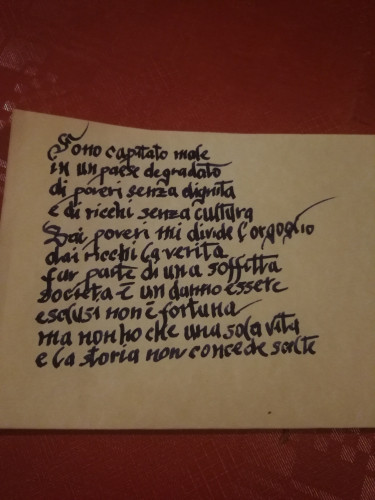 Sono capitato male
in un paese degradato
di poveri senza dignità
e di ricchi senza cultura
Dai poveri mi divide l'orgoglio
dai ricchi la verità
far parte di una soffitta
società è un danno essere
esclusi non è fortuna
ma non ho che una sola vita
e la storia non concede scelte